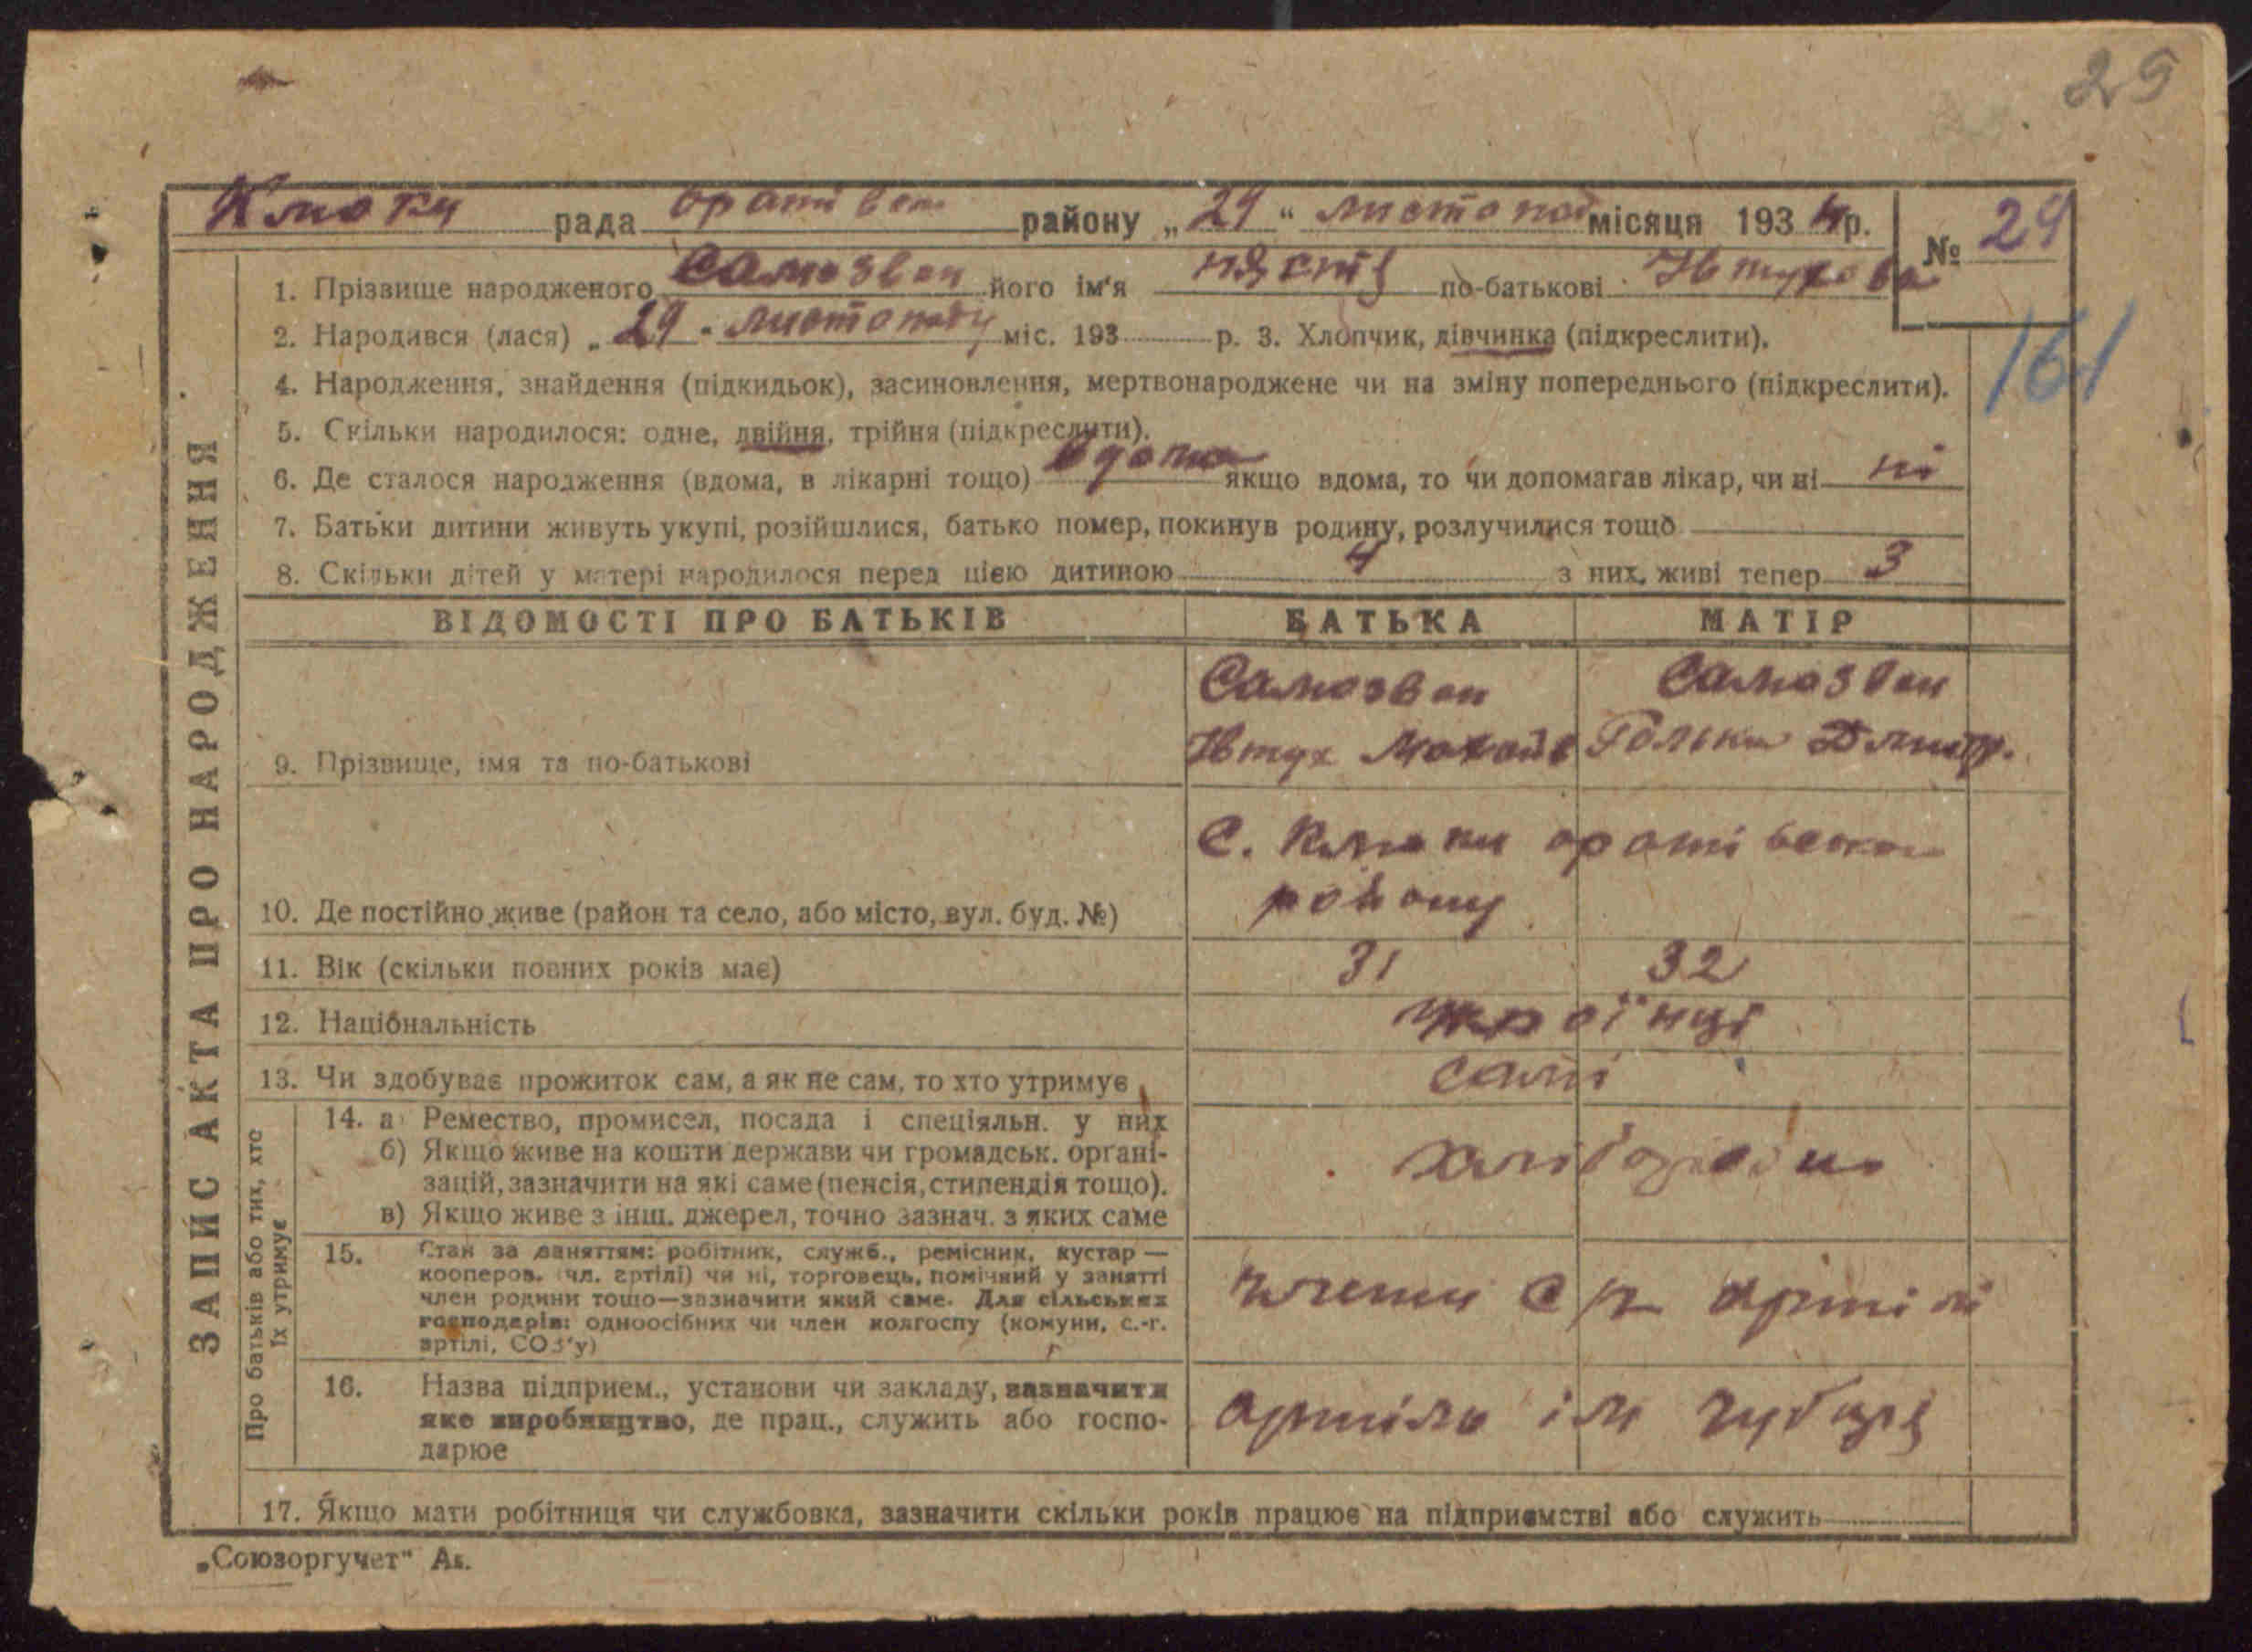 29
Клюки рада Оратівськ району „29“ листопад місяця 1934 р. № 29
1. Прізвище народженого Самозван його ім'я Настя по-батькові Івтухова
161
2. Народився (лася) „29 „ листопаду міс. 193 р. 3. Хлопчик, дівчинка (підкреслити).
4. Народження, знайдення (підкидьок), засиновлення, мертвонароджене чи на зміну попереднього (підкреслити).
5. Скільки народилося: одне, двійня, трійня (підкреслити).
6. Де сталося народження (вдома, в лікарні тощо) вдома якщо вдома, то чи допомагав лікар, чи ні ні
7. Батьки дитини живуть укупі, розійшлися, батько помер, покинув родину, розлучилися тощо
8. Скільки дітей у матері народилося перед цією дитиною 4 з них, живі тепер 3
ЗАПИС АКТА ПРО НАРОДЖЕННЯ
ВІДОМОСТІ ПРО БАТЬКІВ БАТЬКА МАТІР
Самозван Самозван
9. Прізвище, імя та по-батькові Івтух Дмитр.
с. Клюки оратівськ
10. Де постійно живе (район та село, або місто, вул. буд. №) району
11. Вік (скільки повних років має) 31 32
12. Національність українці
13. Чи здобуває прожиток сам, а як не сам, то хто утримує самі
Про батьків або тих, хто їх утримує
14. а) Ремество, промисел, посада і спеціяльн. у них
б) Якщо живе на кошти держави чи громадськ. органі-
зацій, зазначити на які саме (пенсія, стипендія тощо).
в) Якщо живе з інш. джерел, точно зазнач. з яких саме
хлібороби
15. Стан за заняттям: робітник, служб., ремісник, кустар —
кооперов. (чл. артілі) чи ні, торговець, помічний у занятті
член родини тощо—зазначити який саме. Для сільських
господарів: одноосібних чи член колгоспу (комуни, с.-г.
артілі, СОЗ'у)
члени с/г артілі
16. Назва підприєм., установи чи закладу, зазначити
яке виробництво, де прац., служить або госпо-
дарює
артіль ім Чубаря
17. Якщо мати робітниця чи службовка, зазначити скільки років працює на підприємстві або служить
„Союзоргучет" Ак.